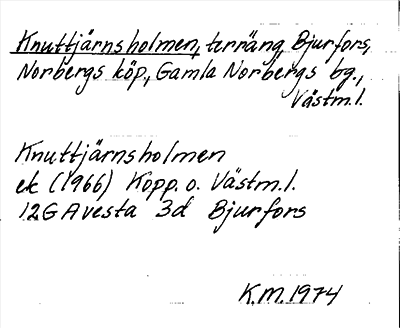 Knuttjärnsholmen, terräng Bjurfors,
Norbergs köp., Gamla Norbergs bg.,
Västm.l.
Knuttjärnsholmen
ek (1966) Kopp. o. Västm.l.
12G Avesta 3d Bjurfors
K.M. 1974